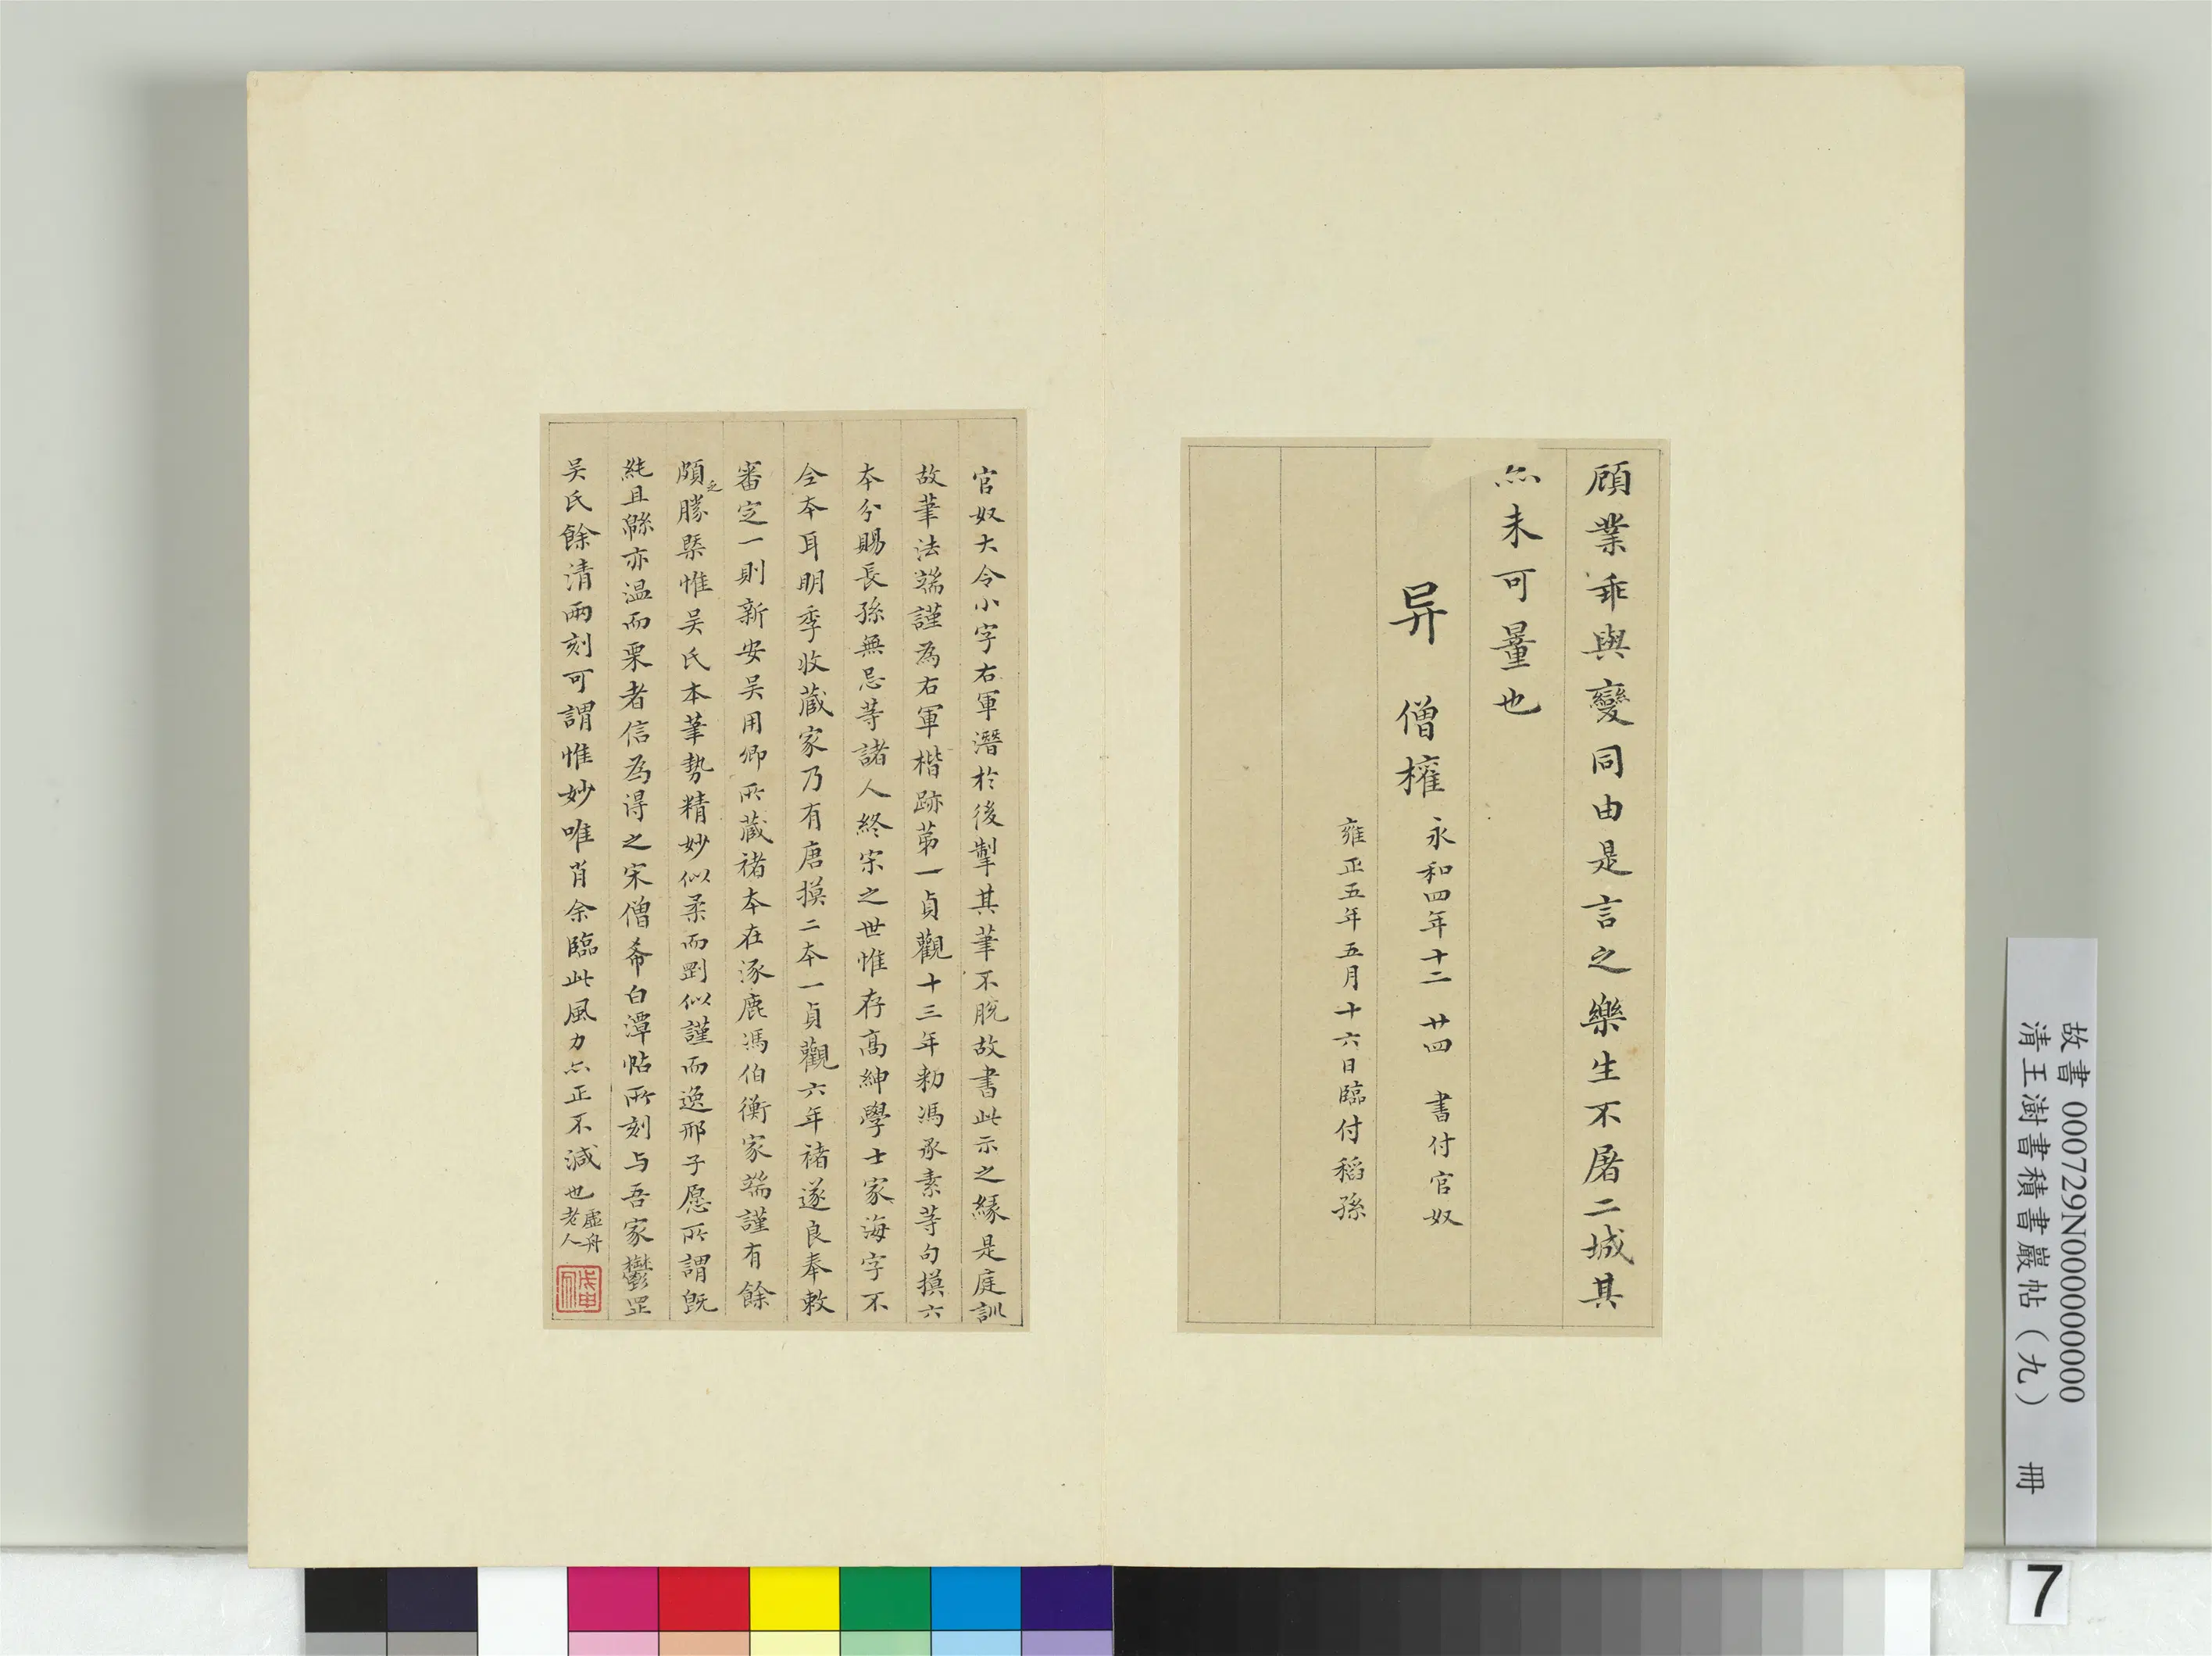 顧業乖與變同由是言之樂生不屠二城其
亦未可量也
异　僧權
永和四年十二　廿四　書付官奴
雍正五年五月十六日臨付稻孫
官奴大令小字右軍潛於後掣其筆不脫故書此示之緣是庭訓
故筆法端謹為右軍楷跡第一貞觀十三年勑馮承素等勾摸六
本分賜長孫無忌等諸人終宋之世惟存高紳學士家海字不
全本耳明季收蔵家乃有唐摸二本一貞觀六年褚遂良奉敕
審定一則新安吴用卿所蔵褚本在涿鹿馮伯衡家端謹有餘
頗乏勝槩惟吴氏本筆勢精妙似柔而剛似謹而逸邢子愿所謂既
純且緜亦温而栗者信為得之宋僧希白潭帖所刻与吾家鬱岡
吴氏餘清兩刻可謂惟妙唯肖余臨此風力亦正不減也
虛舟
老人
戊申
故書 000729N000000000
清王澍書積書巖帖（九）　冊
7